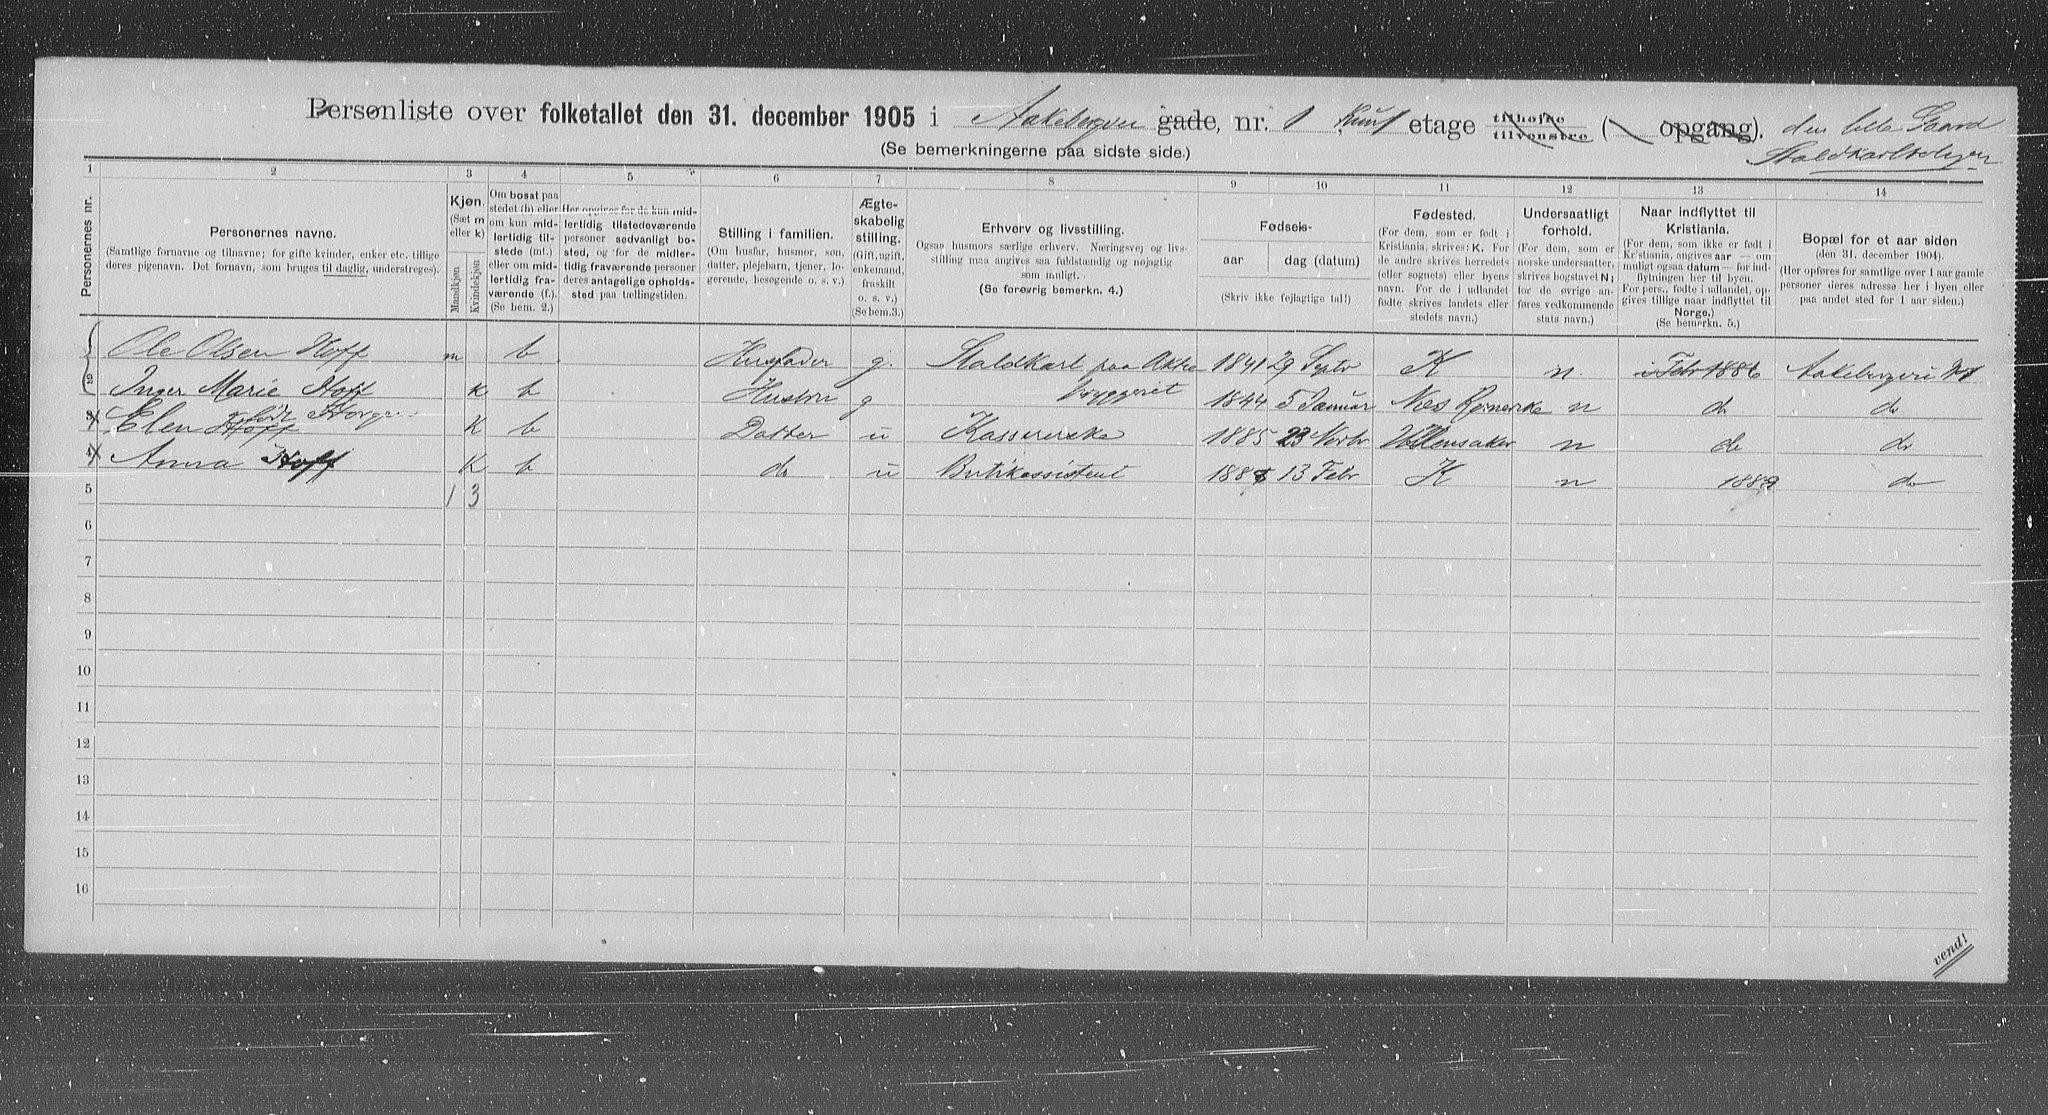 Personliste over folketallet den 31. december 1905 i Aakebergvei gade, nr. 1 etage tilhøjre tilvenstre ( opgang). den lille Gaard
(Se bemerkningerne paa sidste side.)
1 2 3 4 5 6 7 8 9 10 11 12 13 14
Personernes nr.
Personernes navne.
(Samtlige fornavne og tilnavne; for gifte kvinder, enker etc. tillige
deres pigenavn. Det fornavn, som bruges til daglig, understreges).
Kjøn.
(Sæt m
eller k)
Mandkjøn
Kvindekjøn
Om bosat paa
stedet (b) eller
om kun mid-
lertidig til-
stede (mt.)
eller om mid-
lertidig fra-
værende (f.).
(Se bem. 2.)
Her opgives for de kun mid-
lertidig tilstedeværende
personer sedvanligt bo-
sted, og for de midler-
tidig fraværende personer
deres antagelige opholds-
sted paa tællingstiden.
Stilling i familien.
(Om husfar, husmor, søn,
datter, plejebarn, tjener, lo-
gerende, besøgende o. s. v.)
Ægte-
skabelig
stilling.
(Gift, ugift,
enkemand,
fraskilt
o. s. v.)
(Se bem.3.)
Erhverv og livsstilling.
Ogsaa husmors særlige erhverv. Næringsvej og livs-
stilling maa angives saa fuldstændig og nøjagtig
som muligt.
(Se forøvrig bemerkn. 4.)
Fødsels-
aar dag (datum)
(Skriv ikke fejlagtige tal!)
Fødested.
(For dem, som er født i
Kristiania, skrives: K. For
de andre skrives herredets
(eller sognets) eller byens
navn. For de i udlandet
fødte skrives landets eller
stedets navn.)
Undersaatligt
forhold.
(For dem, som er
norske undersaatter,
skrives bogstavet N;
for de øvrige an-
føres vedkommende
stats navn.)
Naar indflyttet til
Kristiania.
(For dem, som ikke er født i
Kristiania, angives aar — om
muligt ogsaa datum — for ind-
flytningen her til byen.
For pers., fødte i udlandet, op-
gives tillige naar indflyttet til
Norge.)
(Se bemerkn. 5.)
Bopæl for et aar siden
(den 31. december 1904).
(Her opføres for samtlige over 1 aar gamle
personer deres adresse her i byen eller
paa andet sted for 1 aar siden.)
Ole Olsen Hoff m b Husfader g. Staldkarl paa Aktie 1841 29 Septr K n. Febr 1886 Aakebergvei No 1
2 Inger Marie Hoff k b Hustru g bryggeriet 1844 5 Januar Nes Romerike n do do
3 Elen Hoff k b Datter u Kassererske 1885 23 Novbr Ullensaker n do do
4 Anna Hoff k b do u Butikassistent 13 Febr K n do
5 1 3
6
7
8
9
10
11
12
13
14
15
16
vend!